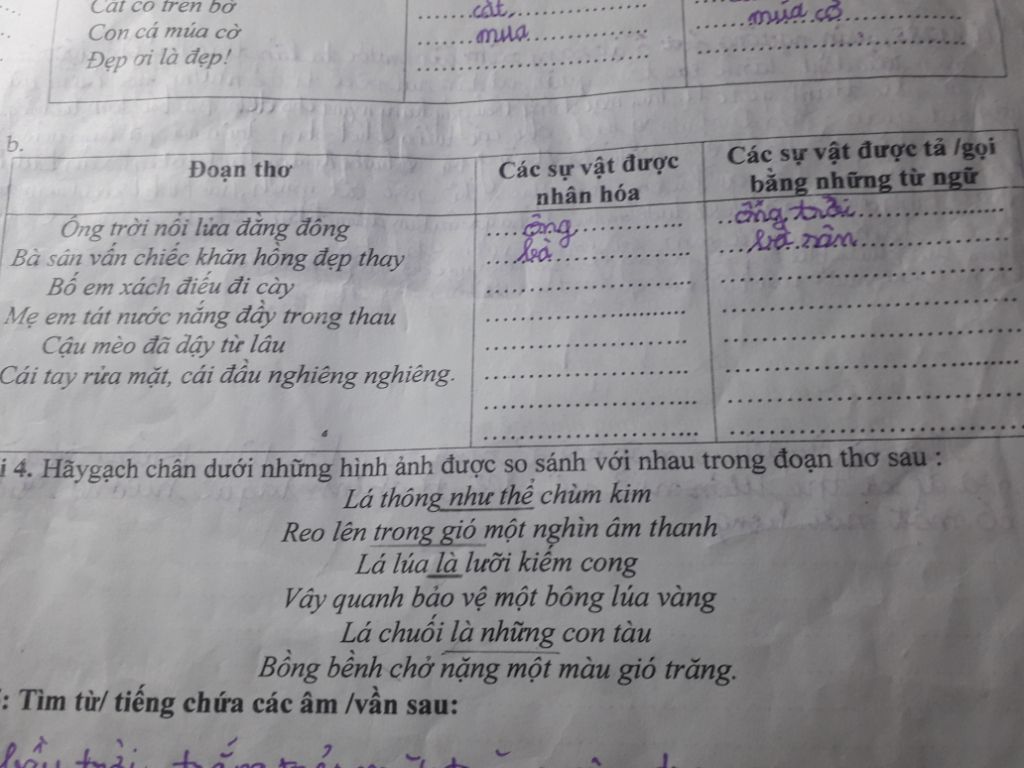 Cắt cỏ trên bờ cắt múa cờ
Con cá múa cờ múa
Đẹp ơi là đẹp!
b.
Đoạn thơ Các sự vật được nhân hóa Các sự vật được tả /gọi bằng những từ ngữ
Ông trời nổi lửa đằng đông ông ông trời
Bà sân vấn chiếc khăn hồng đẹp thay bà bà sân
Bố em xách điếu đi cày
Mẹ em tát nước nắng đầy trong thau
Cậu mèo đã dậy từ lâu
Cái tay rửa mặt, cái đầu nghiêng nghiêng.
i 4. Hãygạch chân dưới những hình ảnh được so sánh với nhau trong đoạn thơ sau :
Lá thông như thể chùm kim
Reo lên trong gió một nghìn âm thanh
Lá lúa là lưỡi kiếm cong
Vây quanh bảo vệ một bông lúa vàng
Lá chuối là những con tàu
Bồng bềnh chở nặng một màu gió trăng.
: Tìm từ/ tiếng chứa các âm /vần sau: